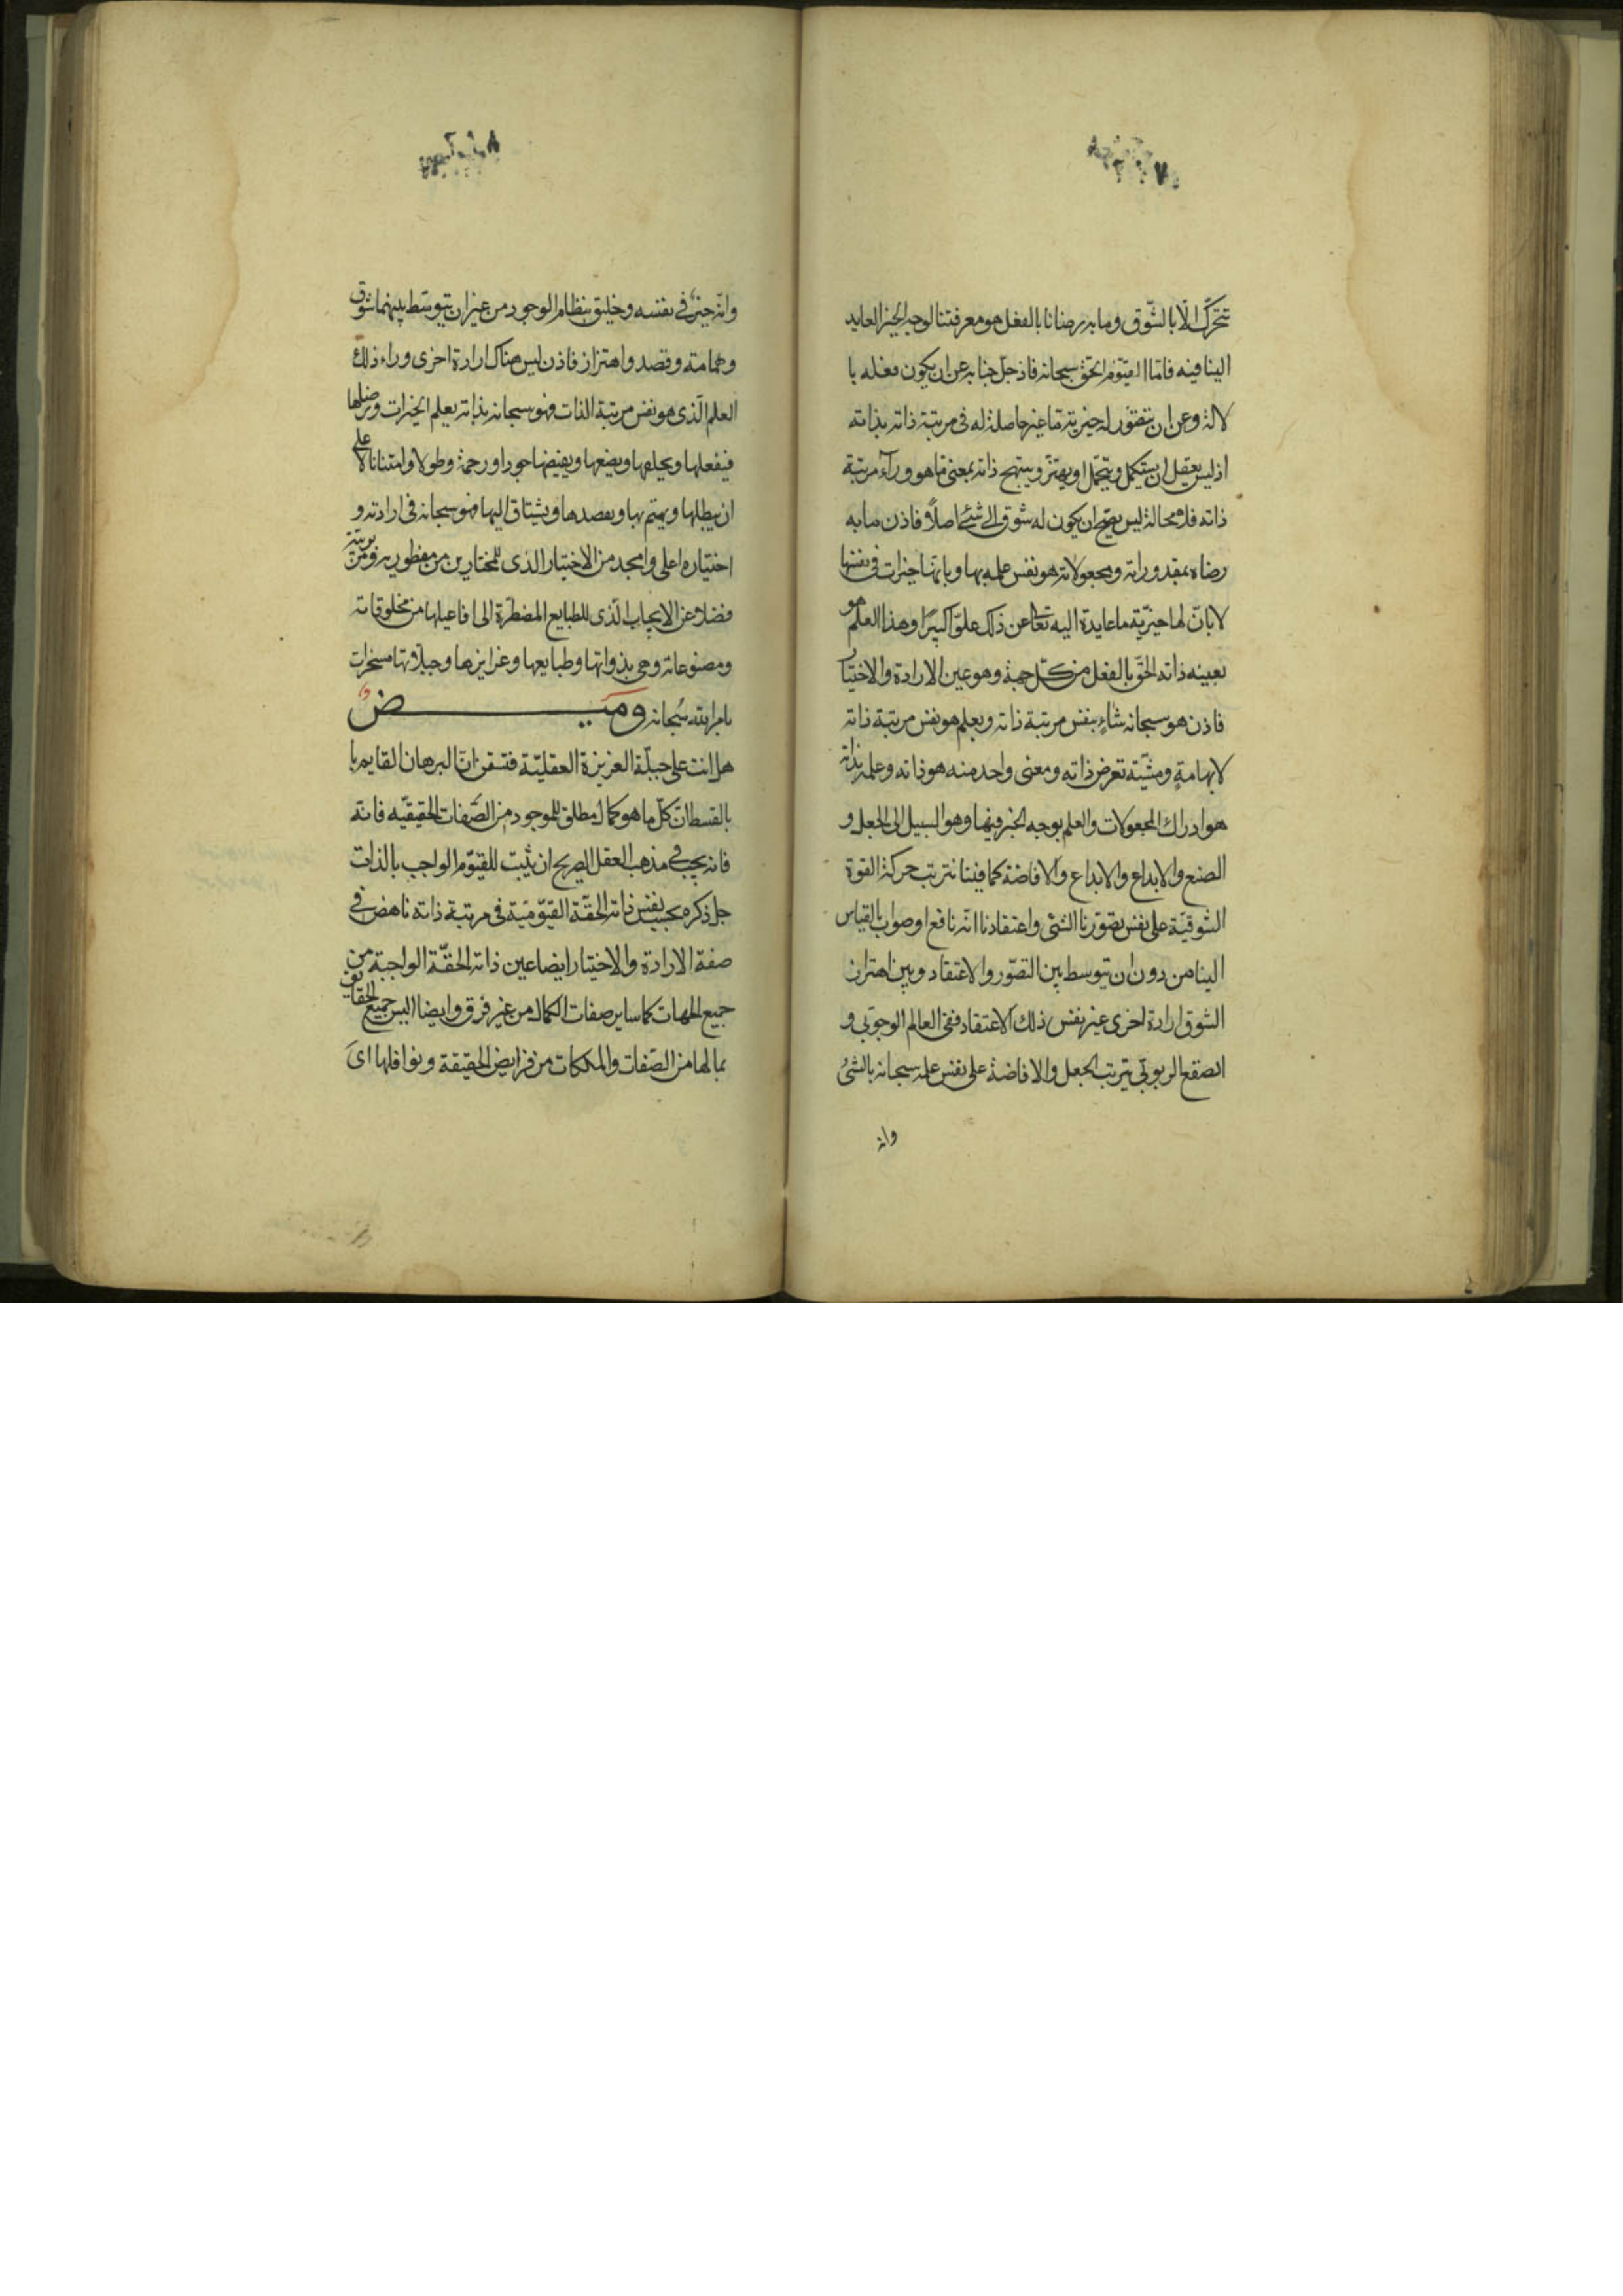 تتحرّك الّا بالشّوق وما به رضانا بالفعل هو معرفتنا لوجه الخير العايد
الينا فيه فامّا القيّوم الحقّ سبحانه فاذ جلّ جنابه عن ان يكون فعله با
لالة وعن ان يتصّور له خيرية ما غير حاصلة له فى مرتبة ذاته بذاته
اذ ليس يعقل ان يستكمل ويتجمّل او يهتزّ ويبتهج ذاته بمعنى ما هو ورآء مرتبة
ذاته فلا محالة ليس يصحّ ان يكون له شوق الى شئ اصلاً فاذن ما به
رضاه بمقدوراته ومجعولاته هو نفس علمه بها وبانّها خيرات فى نفسها
لا بانّ لها خيريّه ما عايدة اليه تعالى عن ذلك علوّا كبيرًا وهذا العلم هو
بعينه ذاته الحقّ بالفعل من كلّ جهة وهو عين الارادة والاختيار
فاذن هو سبحانه شاءٍ بنفس مرتبة ذاته وبعلم هو نفس مرتبة ذاته
لا بهامةٍ ومشّية تعرض ذاته ومعنى واحد منه هو ذاته وعلمه بذاته
هو ادراك المجعولات والعلم بوجه الخير فيها وهو السبيل الى الجعل و
الصنع والابداع والابداع والافاضة كما فينا نترتب حركة القوة
الشوقيّة على نفس تصّورنا الشئ واعتقادنا انّه نافع او صواب بالقياس
الينا من دون ان يتوسط بين التصّور والاعتقاد وبين اهتزاز
الشوق ارادة اخرى غير نفس ذلك الاعتقاد ففى العالم الوجوبى و
الصقع الربوبّى يترتب الجعل والافاضة على نفس علمه سبحانه بالشئ
وانه
وانّه خيرٌ فى نفسه وخليق بنظام الوجود من غير ان يتوسّط بينهما شوق
وهمامة وقصد واهتزاز فاذن ليس هناك ارادة اخرى وراء ذلك
العلم الّذى هو نفس مرتبة الذات فهو سبحانه بذاته يعلم الخيرات ويرضاها
فيفعلها ويجعلها ويصنعها ويفيضها جودا ورحمة وطولا وامتنانا لا على
ان يطلبها ويهتم بها ويقصدها ويشتاق اليها فهو سبحانه فى ارادته و
اختياره اعلى وامجد من الاختيار الذى للمختارين من مفطوريه ومربوبيّته
فضلا عن الايجاب الّذى للطبايع المضطرّة الى افاعيلها من مخلوقاته
ومصنوعاته وهى بذواتها وطبايعها وغرايزها وجبلّاتها مسخرات
بامرالله سُبحانه وميـــض
هل انت على جبلّة الغريزة العقليّة فتيقن انّ البرهان القايم با
بالقسط انّ كلّ ما هو كمال مطلق للموجود من الصّفات الحقيقيّه فانه
فانه يجب فى مذهب العقل الصريح ان يثبت للقيوّم الواجب بالذات
جل ذكره بحسب نفس ذاته الحقّة القيّوميّة فى مرتبة ذاته ناهض فى
صفة الارادة والاختيار ايضا عين ذاته الحقّة الواجبة من
جميع الجهات كما ساير صفات الكمال من غير فرق وايضا اليس جميع الحقايق
بما لها من الصّفات والملكات من فرايض الحقيقة ونوافلها اىَ